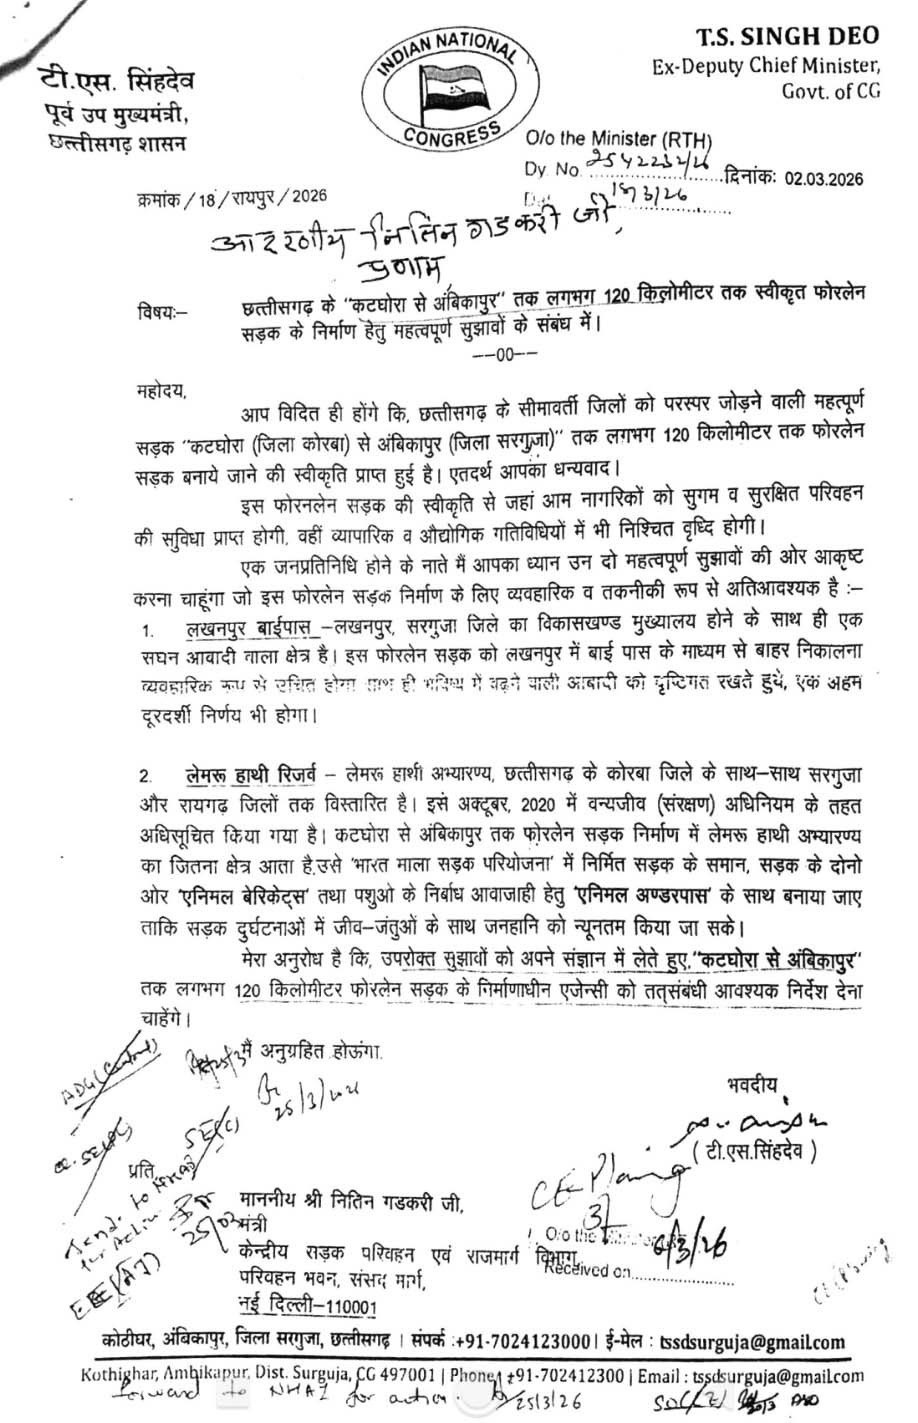 टी.एस. सिंहदेव
पूर्व उप मुख्यमंत्री,
छत्तीसगढ़ शासन
INDIAN NATIONAL CONGRESS
T.S. SINGH DEO
Ex-Deputy Chief Minister,
Govt. of CG
O/o the Minister (RTH)
Dy. No.
दिनांकः 02.03.2026
क्रमांक / 18 / रायपुर / 2026
आदरणीय नितिन गडकरी जी,
प्रणाम,
विषयः– छत्तीसगढ़ के "कटघोरा से अंबिकापुर" तक लगभग 120 किलोमीटर तक स्वीकृत फोरलेन
सड़क के निर्माण हेतु महत्वपूर्ण सुझावों के संबंध में।
––00––
महोदय,
आप विदित ही होंगे कि, छत्तीसगढ़ के सीमावर्ती जिलों को परस्पर जोड़ने वाली महत्पूर्ण
सड़क "कटघोरा (जिला कोरबा) से अंबिकापुर (जिला सरगुजा)" तक लगभग 120 किलोमीटर तक फोरलेन
सड़क बनाये जाने की स्वीकृति प्राप्त हुई है। एतदर्थ आपका धन्यवाद।
इस फोरनलेन सड़क की स्वीकृति से जहां आम नागरिकों को सुगम व सुरक्षित परिवहन
की सुविधा प्राप्त होगी, वहीं व्यापारिक व औद्योगिक गतिविधियों में भी निश्चित वृध्दि होगी।
एक जनप्रतिनिधि होने के नाते मैं आपका ध्यान उन दो महत्वपूर्ण सुझावों की ओर आकृष्ट
करना चाहूंगा जो इस फोरलेन सड़क निर्माण के लिए व्यवहारिक व तकनीकी रूप से अतिआवश्यक है :–
1. लखनपुर बाईपास –लखनपुर, सरगुजा जिले का विकासखण्ड मुख्यालय होने के साथ ही एक
सघन आवादी वाला क्षेत्र है। इस फोरलेन सड़क को लखनपुर में बाई पास के माध्यम से बाहर निकालना
व्यवहारिक रूप से उचित होगा साथ ही भविष्य में बढ़ने वाली आबादी को दृष्टिगत रखते हुये, एक अहम
दूरदर्शी निर्णय भी होगा।
2. लेमरू हाथी रिजर्व – लेमरू हाथी अभ्यारण्य, छत्तीसगढ़ के कोरबा जिले के साथ–साथ सरगुजा
और रायगढ़ जिलों तक विस्तारित है। इसे अक्टूबर, 2020 में वन्यजीव (संरक्षण) अधिनियम के तहत
अधिसूचित किया गया है। कटघोरा से अंबिकापुर तक फोरलेन सड़क निर्माण में लेमरू हाथी अभ्यारण्य
का जितना क्षेत्र आता है,उसे 'भारत माला सड़क परियोजना' में निर्मित सड़क के समान, सड़क के दोनो
ओर 'एनिमल बेरिकेट्स' तथा पशुओ के निर्बाध आवाजाही हेतु 'एनिमल अण्डरपास' के साथ बनाया जाए
ताकि सड़क दुर्घटनाओं में जीव–जंतुओं के साथ जनहानि को न्यूनतम किया जा सके।
मेरा अनुरोध है कि, उपरोक्त सुझावों को अपने संज्ञान में लेते हुए,"कटघोरा से अंबिकापुर"
तक लगभग 120 किलोमीटर फोरलेन सड़क के निर्माणाधीन एजेन्सी को तत्संबंधी आवश्यक निर्देश देना
चाहेंगे।
मैं अनुग्रहित होऊंगा.
25/3/2026
SE(C)
भवदीय
( टी.एस.सिंहदेव )
CE Planning
प्रति,
Send to NHAI
for Action
माननीय श्री नितिन गडकरी जी,
मंत्री
केन्द्रीय सड़क परिवहन एवं राजमार्ग विभाग,
परिवहन भवन, संसद मार्ग,
नई दिल्ली–110001
O/o the Minister
Received on 6/3/26
कोठीघर, अंबिकापुर, जिला सरगुजा, छत्तीसगढ़ । संपर्क :+91-7024123000। ई-मेल : tssdsurguja@gmail.com
Kothighar, Ambikapur, Dist. Surguja, CG 497001 | Phone : +91-702412300 | Email : tssdsurguja@gmail.com
forward to NHAI for action 25/3/26